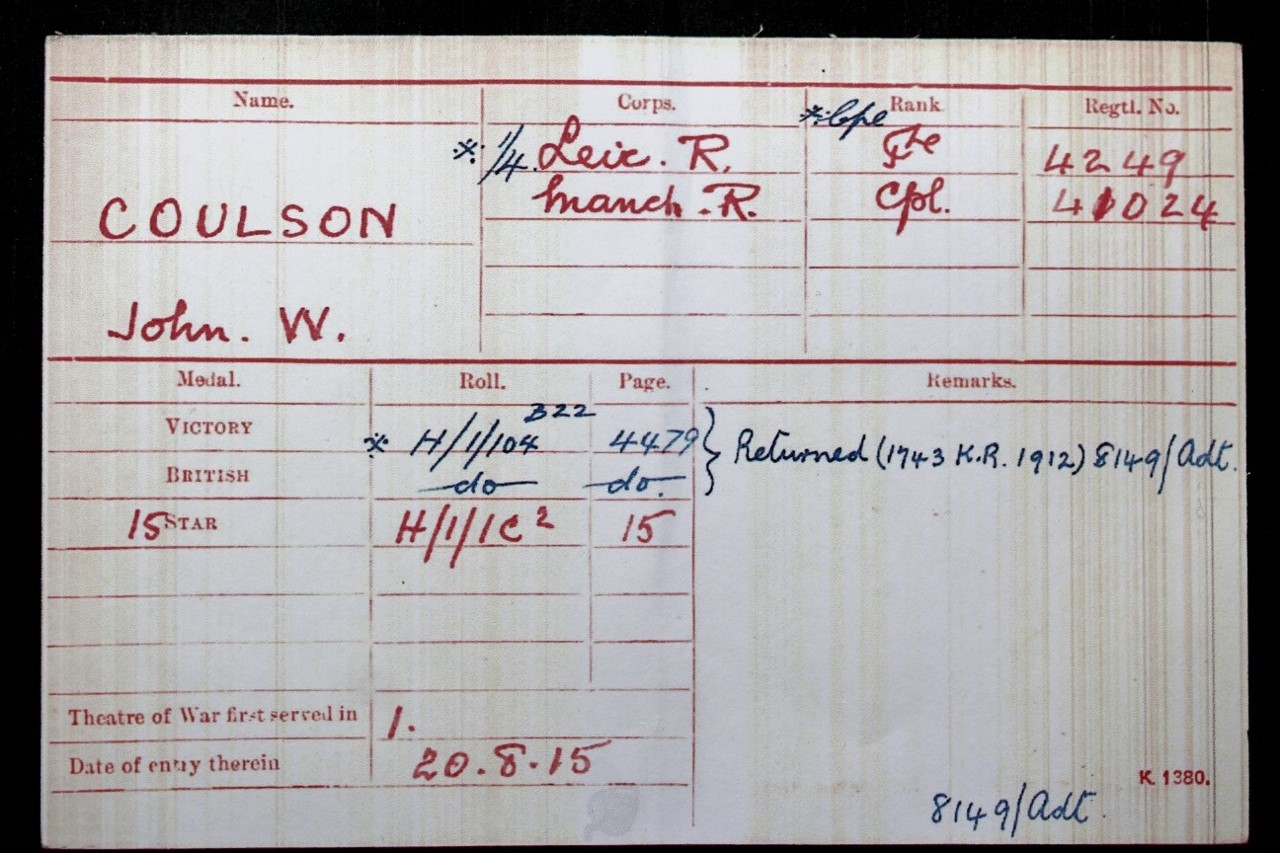 Name. Corps. Rank Regtl. No.
※ Cpl
※ 1/4. Leic. R. Pte 4249
COULSON Manch. R. Cpl. 41024
John. W.
Medal. Roll. Page. Remarks.
B22
VICTORY ※ H/1/104 4479 } Returned (1743 K.R. 1912) 8149/Adt.
BRITISH do do.
15 STAR H/1/1C2 15
Theatre of War first served in 1.
Date of entry therein 20.8.15
K. 1380.
8149/Adt.